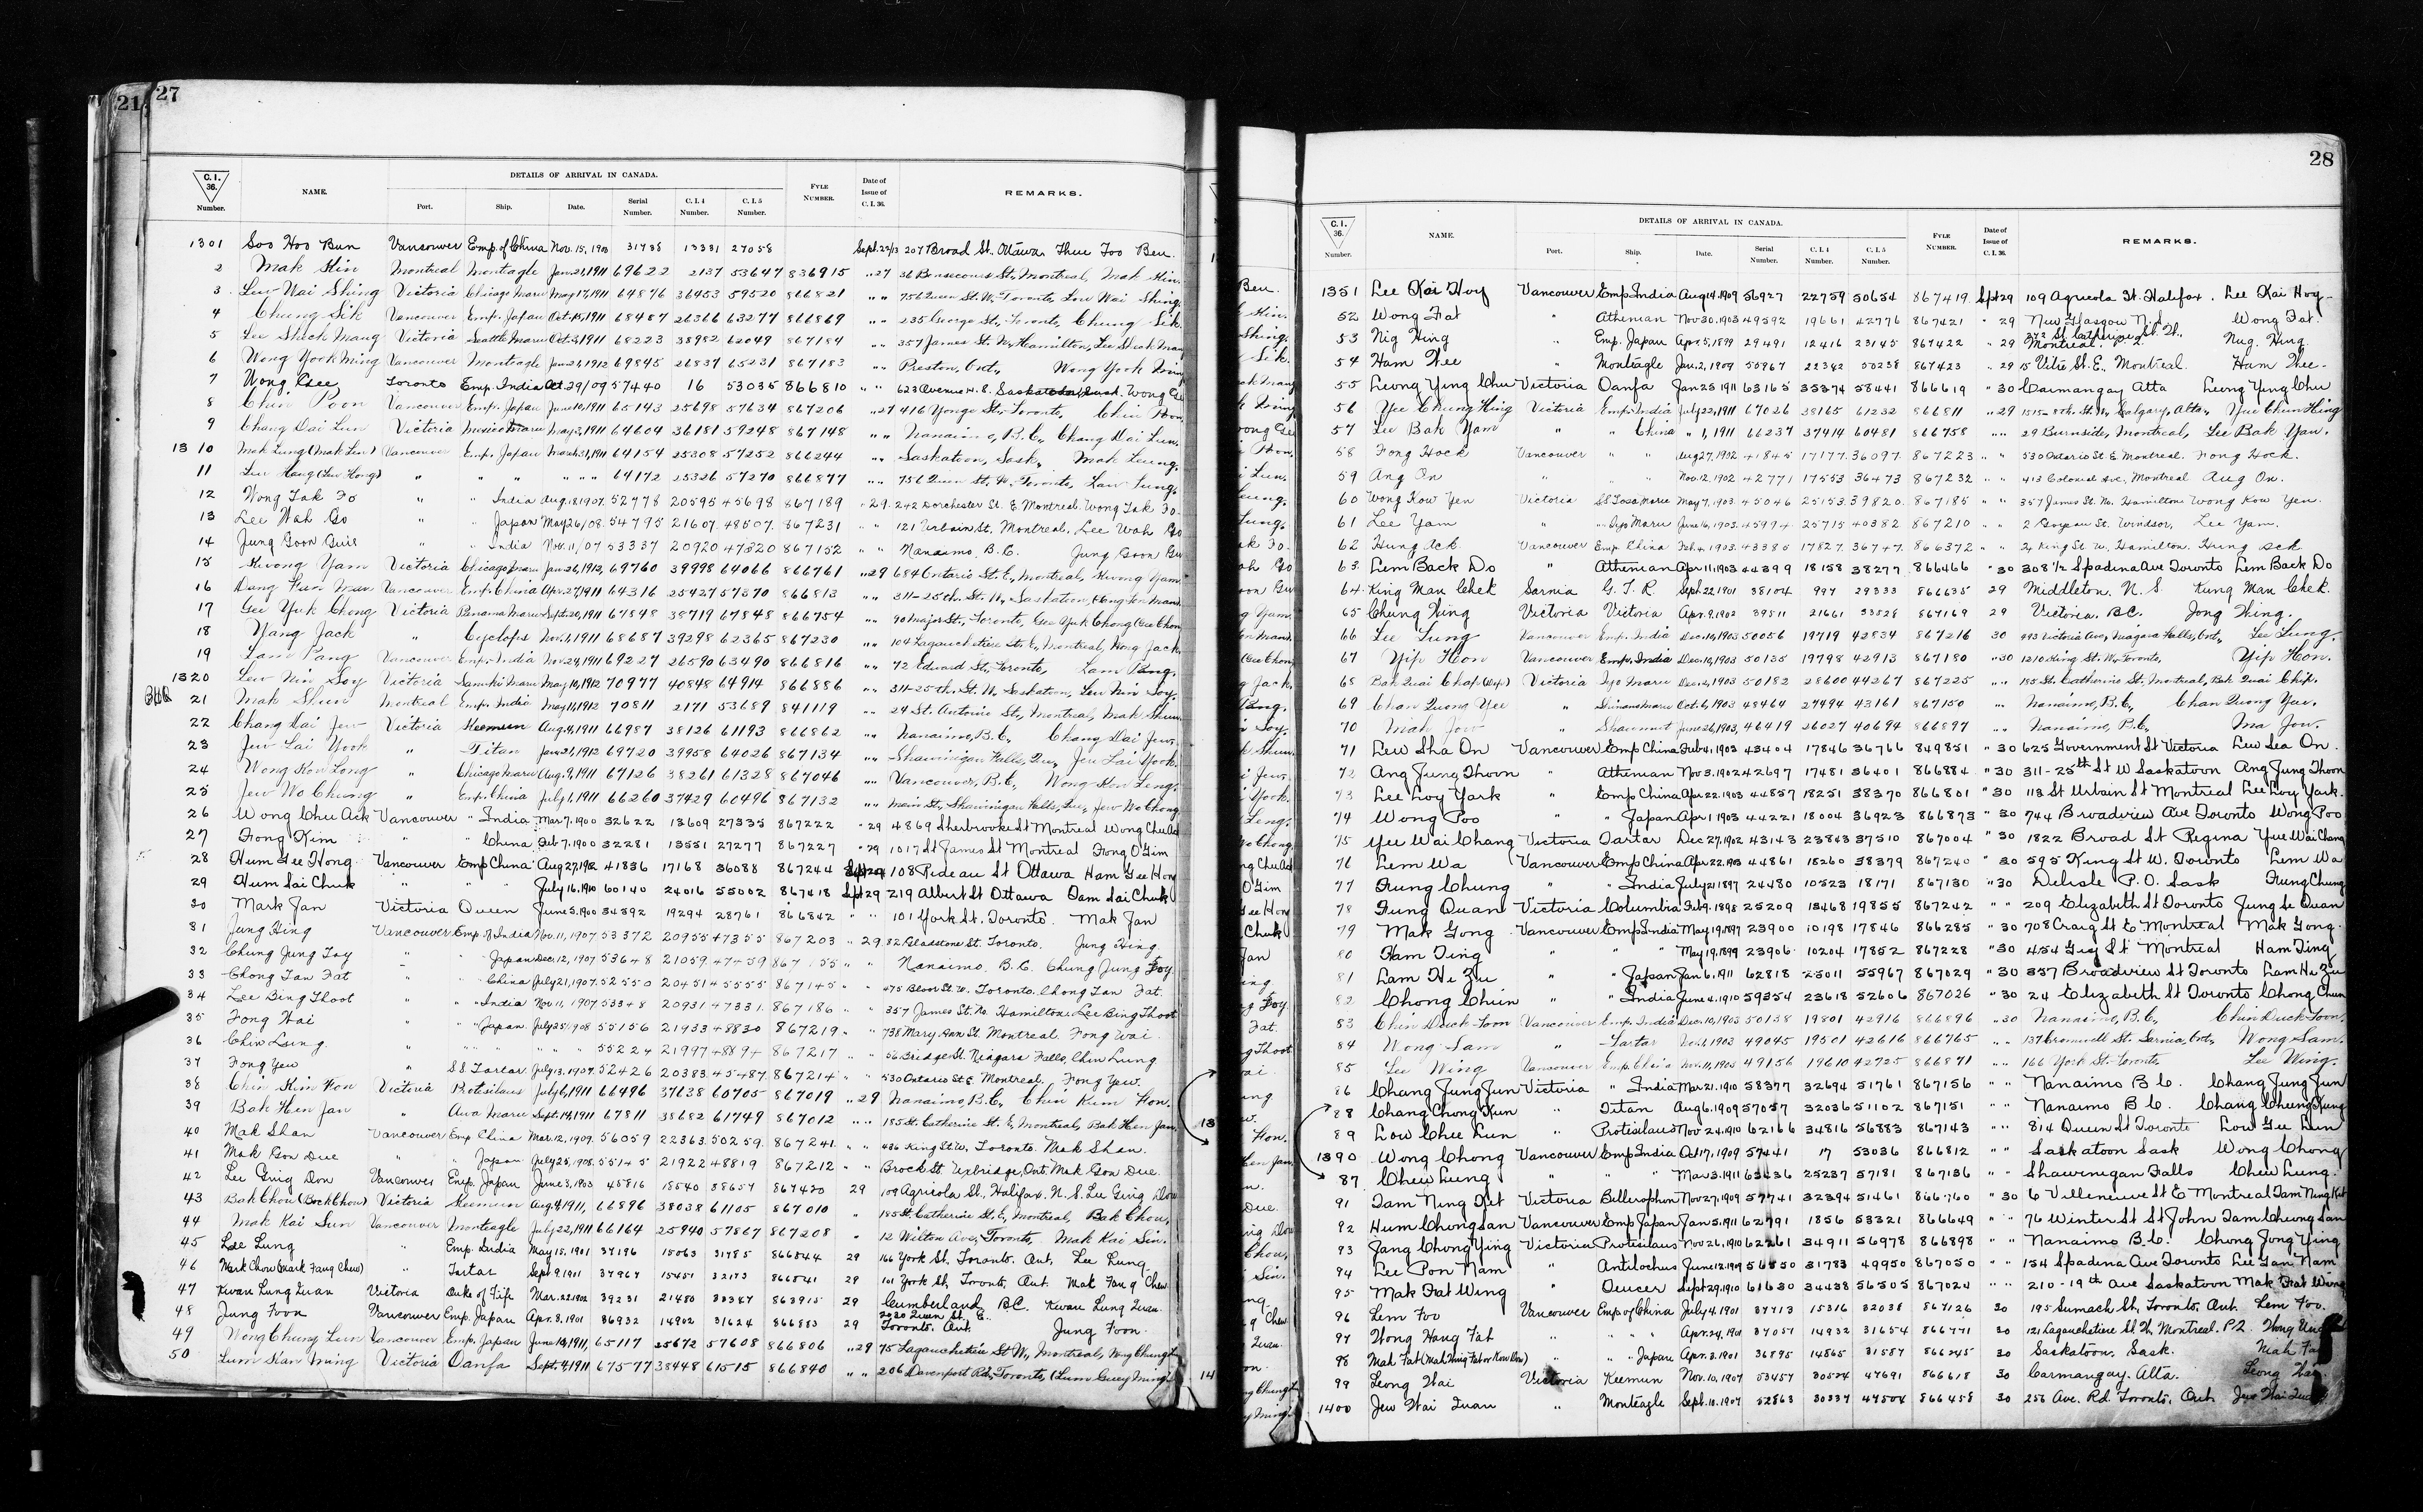 21
27
C. I. 36. Number. NAME. DETAILS OF ARRIVAL IN CANADA. Port. Ship. Date. Serial Number. C. I. 4 Number. C. I. 5 Number. FYLE NUMBER. Date of Issue of C. I. 36. REMARKS.
1301 Soo Hoo Bun Vancouver Emp. of China Nov. 15, 1900 31738 13331 27058 Sept. 29/13 207 Broad St. Ottawa Thue Foo Ben
2 Mak Hin Montreal Monteagle Jan. 21, 1911 69622 2137 53647 836915 " 27 36 Bonsecours St., Montreal, Mak Hin.
3 Lew Wai Shing Victoria Chicago Maru May 17, 1911 64876 36453 59520 866821 " " 756 Queen St. W., Toronto, Low Wai Shing.
4 Chung Sik Vancouver Emp. Japan Oct. 15, 1911 68487 26366 63277 866869 " " 235 George St., Toronto, Chung Sik.
5 Lee Sheck Mang Victoria Seattle Maru Oct. 3, 1911 68223 38982 62049 867184 " " 357 James St. N., Hamilton, Lee Sheck Mang
6 Wong Yook Ming Vancouver Monteagle Jan. 21, 1912 69845 26837 65231 867183 " " Preston, Ont., Wong Yook Ming
7 Wong Gee Toronto Emp. India Oct. 29/09 57440 16 53035 866810 " " 623 Avenue H. S. Saskatoon, Wong Gee
8 Chin Poon Vancouver Emp. Japan June 10, 1911 65143 25698 57634 867206 " 27 416 Yonge St., Toronto, Chin Poon.
9 Chang Dai Lun Victoria Mexico Maru May 3, 1911 64604 36181 59248 867148 " " Nanaimo, B.C., Chang Dai Lun.
1310 Mak Lung (Mak Leu) Vancouver Emp. Japan March 31, 1911 64154 25308 57252 866244 " " Saskatoon, Sask., Mak Leung.
11 " " " " " 64172 25326 57270 866877 " " 756 Queen St. W. Toronto,
12 Wong Tak Fo " " India Aug. 18, 1907. 52778 20595 45698 867189 " 29. 242 Dorchester St. E. Montreal. Wong Tak Fo.
13 Lee Wah Go " " Japan May 26/08. 54795 21607. 48507. 867231 " " 121 Urbain St. Montreal. Lee Wah Go
14 Jung Goon Guie " " India Nov. 11/07 53337 20920 47320 867152 " " Nanaimo. B.C. Jung Goon Gui
15 Kwong Yam Victoria Chicago Maru Jan. 26, 1912, 69760 39998 64066 866761 " 29 684 Ontario St. E., Montreal, Kwong Yam
16 Vancouver Emp. China Apr. 27, 1911 64316 25427 57370 866813 " " 311-25th. St. W., Saskatoon,
17 Gee Yuk Chong Victoria Panama Maru Sept. 20, 1911 67848 38719 67848 866754 " " 90 Major St., Toronto, Gee Yuk Chong (Gee Chong
18 Yang Jack " Cyclops Nov. 1, 1911 68687 39298 62365 867230 " " 104 Lagauchetiere St. E., Montreal, Hong Jack.
19 Lam Pang Vancouver Emp. India Nov. 28, 1911 69227 26590 63490 866816 " " 72 Edward St., Toronto, Lam Pang.
1320 Lew Nin Soy Victoria Sanuki Maru May 10, 1912 70977 40848 64914 866886 " " 311-25th. St. W. Saskatoon, Lew Min Soy.
21 Mak Shun Montreal Emp. India May 11, 1912 70811 2171 53689 841119 " " 24 St. Antoine St., Montreal, Mak Shun.
22 Chang Dai Jew Victoria Keemun Aug. 4, 1911 66987 38126 61193 866862 " " Nanaimo, B.C., Chang Dai Jew.
23 Jew Lai Yook " Titan Jan. 21, 1912 69720 39958 64026 867134 " " Shawinigan Falls, Que., Jew Lai Yook.
24 Wong Kon Long " Chicago Maru Aug. 9, 1911 67126 38261 61328 867046 " " Vancouver, B.C., Wong Kon Leng.
25 Jew No Chung " Emp. China July 1, 1911 66260 37429 60496 867132 " " Main St., Shawinigan Falls, Que., Jew No Chong
26 Wong Chu Ack Vancouver " India Mar. 7. 1900 32622 13609 27335 867222 " 29 4869 Sherbrooke St Montreal Wong Chu Ack
27 Fong Kim " " China Feb 7. 1900 32281 13551 27277 867227 " 29 1017 St James St Montreal Fong O Gim
28 Hum Gee Hong Vancouver Emp China Aug 27, 1902 41836 17168 36088 867244 Sept 29 108 Rideau St Ottawa Ham Gee Hong
29 Hum Sai Chuk " " " July 16, 1910 60140 24016 55002 867418 Sept 29 219 Albert St Ottawa Tam Sai Chuk
30 Mark Jan Victoria Queen June 5, 1900 34392 19294 28761 866842 " " 101 York St. Toronto. Mak Jan
31 Jung Hing Vancouver Emp. of India Nov. 11, 1907 53372 20955 47355 867203 " 29. 82 Gladstone St. Toronto. Jung Hing.
32 Chung Jung Foy " " Japan Dec. 12, 1907 53648 21059 47459 867155 " " Nanaimo. B.C. Chung Jung Foy
33 Chong Tan Fat " " China July 21, 1907. 52550 20451 45555 867145 " " 475 Bloor St. W. Toronto. Chong Tan Fat.
34 Lee Bing Thoot " " India Nov. 11, 1907 53348 20931 47331. 867186 " " 357 James St. No. Hamilton. Lee Bing Thoot
35 Fong Wai " " Japan. July 25/1908 55156 21933 48830 867219 " " 738 Mary Ann St. Montreal. Fong Wai.
36 Chin Lung. " " " " " 55224 21997 4889+ 867217 " " 56 Bridge St. Niagara Falls, Chin Lung
37 Fong Yew " SS Tartar July 13. 1907. 52426 20383. 45487. 867214 " " 530 Ontario St. E. Montreal. Fong Yew.
38 Chin Kim Hon Victoria Protesilaus July 6, 1911 66496 37638 60705 867019 " 29 Nanaimo, B.C., Chin Kum Hon.
39 Bak Hen Jan " Awa Maru Sept. 14, 1911 67811 38682 61749 867012 " " 185 St. Catherine St. E., Montreal, Bak Hen Jan.
40 Mak Shan Vancouver Emp. China Mar. 12, 1909. 56059 22363. 50259. 867241. " " 436 King St W. Toronto. Mak Shan.
41 Mak Gon Due " " Japan July 25, 1908. 55145 21922 48819 867212 " " Brock St. Uxbridge, Ont. Mak Gon Due.
42 Lee Ging Don Vancouver Emp. Japan June 3, 1903 45816 18540 38657 867420 29 109 Agricola St., Halifax. N.S. Lee Ging Don
43 Bak Chou (Bock Chow) Victoria Keemun Aug. 4, 1911, 66896 38038 61105 867010 " 185 St. Catherine St. E., Montreal, Bak Chou.
44 Mak Kai Sun Vancouver Monteagle July 22, 1911 66164 25940 57867 867208 " 12 Wilton Ave., Toronto, Mak Kai Sin.
45 Lee Lung " Emp. India May 15, 1901 37196 15063 31785 866844 29 166 York St. Toronto. Ont. Lee Lung
46 Mark Chow (Mark Fang Chew) " Tartar Sept. 9. 1901 37967 15451 32173 866841 29 101 York St., Toronto, Ont. Mak Fang Chew
47 Kwan Lung Quan Victoria Duke of Fife Mar. 22. 1902 39231 21480 30387 863915 29 Cumberland, BC. Kwan Lung Quan
48 Jung Foon Vancouver Emp. Japan Apr. 8. 1901 36932 14902 31624 866883 29 2020 Queen St. E. Toronto. Ont. Jung Foon.
49 Wong Chung Leun Vancouver Emp. Japan June 13, 1911 65117 25672 57608 866806 " 29 75 Lagauchetiere St. W., Montreal, Wong Chung
50 Lum Kan Ming Victoria Oanfa Sept. 4, 1911 67577 38448 61515 866840 " " 206 Davenport Rd., Toronto, (Lum Guey Ming)
28
C. I. 36. Number. NAME. DETAILS OF ARRIVAL IN CANADA. Port. Ship. Date. Serial Number. C. I. 4 Number. C. I. 5 Number. FYLE NUMBER. Date of Issue of C. I. 36. REMARKS.
1351 Lee Kai Hoy Vancouver Emp India Aug 14, 1909 56927 22759 50654 867419. Sept 29 109 Agricola St. Halifax. Lee Kai Hoy
52 Wong Fat " Athenian Nov 30, 1903 49592 19661 42776 867421 " 29 New Glasgow N.S. Wong Fat.
53 Nig Hing " Emp. Japan Apr. 5, 1899 29491 12416 23145 867422 " 29 372 St. Catherine St. W., Montreal. P.Q. Nug. Hing.
54 Ham Thee " Monteagle Jan. 2, 1909 50967 22342 50238 867423 " 29 15 Vitré St. E., Montreal. Ham Thee.
55 Leong Ying Chu Victoria Oanfa Jan 25, 1911 63165 35374 58441 866619 " 30 Carmangay Alta Leong Ying Chu
56 Yee Chung Hing Victoria Emp. India July 22, 1911 67026 38165 61232 866811 " 29 1515-8th. St. W., Calgary, Alta., Yee Chun Hing
57 Lee Bak Yam " " China " 1, 1911 66237 37414 60481 866758 " " 29 Burnside, Montreal, Lee Bak Yan.
58 Fong Hock Vancouver " " Aug 27, 1902 41845 17177. 36097. 867223 " " 530 Ontario St. E. Montreal. Fong Hock.
59 Ang On Nov. 12, 1902 42771 17553 36473 867232 " " 413 Colonial Ave. Montreal Aug On.
60 Wong Kow Yen Victoria SS Tosa Maru May 7, 1903. 45046 25153. 39820. 867185 " " 357 James St. No. Hamilton Wong Kow Yen.
61 Lee Yam " " Iyo Maru June 16, 1903. 45994 25715 40382 867210 " " 2 Goyeau St. Windsor, Lee Yam.
62 Hung Ack. Vancouver Emp. China Feb. 4. 1903. 43385 17827. 36747. 866372 " " 24 King St. W., Hamilton. Hung Ack
63. Lem Back Do " Athenian Apr 11, 1903 44399 18158 38277 866466 " 30 308 1/2 Spadina Ave Toronto Lem Back Do
64. King Man Chek Sarnia G. T. R. Sept. 22 1901 38104 997 29333 866635 29 Middleton, N.S. Kung Man Chek.
65 Chung Hing Victoria Victoria Apr. 9, 1902 39511 21661 33528 867169 29 Victoria. B.C. Jong Hing.
66 Lee Lung Vancouver Emp. India Dec. 10, 1903 50056 19719 42834 867216 30 993 Victoria Ave., Niagara Falls, Ont., Lee Lung.
67 Yip Hon Vancouver Emp. India Dec. 10, 1903 50135 19798 42913 867180 " 30 1210 King St. W., Toronto, Yip Hon.
68 Bak Quai Chap Victoria Iyo Maru Dec. 16, 1903 50182 28600 44267 867225 " " 185 St. Catherine St., Montreal, Bak Quai Chip.
69 Chan Quong Yee " Shinano Maru Oct. 6, 1903 48464 27494 43161 867150 " " Nanaimo, B.C., Chan Quong Yue.
70 Mak Jow " Shawmut June 26, 1903, 46419 26027 40694 866897 " " Nanaimo, B.C., Ma Jow.
71 Lew Sha On Vancouver Emp China Feb 4, 1903 43404 17846 36766 849851 " 30 625 Government St Victoria Lew Sea On.
72 Ang Jung Thoon " Athenian Nov 3. 1902 42697 17481 36401 866884 " 30 311-25th St W Saskatoon Ang Jung Thoon
73 Lee Loy York " Emp China Apr 22. 1903 44857 18251 38370 866801 " 30 113 St Urbain St Montreal Lee Loy York.
74 Wong Poo " " Japan Apr 1 1903 44221 18004 36923 866873 " 30 744 Broadview Ave Toronto Wong Poo
75 Yee Wai Chang Victoria Tartar Dec 27, 1902 43143 23843 37510 867004 " 30 1822 Broad St Regina Yue Wai Chang
76 Lem Wa Vancouver Emp China Apr. 22, 1903 44861 18260 38379 867240 " 30 595 King St W. Toronto Lem Wa
77 Fung Chung " " India July 21 1897 24480 10523 18171 867130 " 30 Delisle P.O. Sask Fung Chung
78 Fung Quan Victoria Columbia Feb 9. 1898 25209 13468 19855 867242 " " 209 Elizabeth St Toronto Jung Se Quan
79 Mak Gong Vancouver Emp India May 19, 1897 23900 10198 17846 866285 " 30 708 Craig St E Montreal Mak Gong.
80 Ham Ting " " " May 19, 1899 23906 10204 17852 867228 " 30 454 Guy St Montreal Ham Ting
81 Lam Hi Zu " " Japan Jan 6, 1911 62818 25011 55967 867029 " 30 337 Broadview St Toronto Lam Hi Zu
82 Chong Chun " " India June 4, 1910 59354 23618 52606 867026 " 30 24 Elizabeth St Toronto Chong Chun
83 Chin Duck Toon Vancouver Emp. India Dec. 10, 1903 50138 19801 42916 866896 " 30 Nanaimo, B.C., Chin Duck Toon.
84 Wong Sam " Tartar 1903 49045 19501 42616 866765 " " 137 Cromwell St. Sarnia, Ont., Wong Sam.
85 Lee Wing Vancouver Emp. China Nov. 11, 1903 49156 19610 42725 866871 " " 166 York St. Toronto Lee Wing.
86 Chang Jung Jun Victoria " India Mar. 21, 1910 58377 32694 51761 867156 " " Nanaimo B.C. Chang Jung Jun
88 Chang Chong Kun " Titan Aug 6. 1909 57037 32036 51102 867151 " " Nanaimo B C. Chang Cheung Kung
89 Low Chee Lun " Protesilaus Nov 24, 1910 62166 34816 56883 867143 " " 814 Queen St Toronto Low Gee Lun
1390 Wong Chong Vancouver Emp India Oct 17, 1909 57441 17 53036 866812 " " Saskatoon Sask Wong Chong
87 Chew Lung " " " Mar 3, 1911 63636 25237 57181 867136 " " Shawenegan Falls Chew Lung.
91 Tam Ning Kit Victoria Bellerophon Nov 27, 1909 57741 32394 51461 866760 " 30 6 Villeneuve St E Montreal Tam Ning Kit
92 Hum Chong San Vancouver Emp Japan Jan 5, 1911 62791 1856 53321 866649 " " 76 Winter St St John Tam Cheung San
93 Jang Chong Ying Victoria Protesilaus Nov 26, 1910 62261 34911 56978 866898 " " Nanaimo B.C. Chong Jong Ying
94 Lee Pon Nam " Antilochus June 12, 1909 56550 31783 49950 867050 " " 154 Spadina Ave Toronto Lee Gan Nam
95 Mak Fat Wing " Sept 29, 1910 61630 34438 56505 867024 " " 210-19th Ave Saskatoon Mak Fat Wing
96 Lem Foo Vancouver Emp of China July 4. 1901 37713 15316 32038 867126 30 195 Sumach St., Toronto. Ont. Lem Foo.
97 Wong Hang Fat " " " Apr. 24, 1901 37057 14932 31654 866771 30 121 Lagauchetiere St. W., Montreal. P.Q. Wong
98 Mah Fat " " Japan Apr. 3. 1901 36895 14865 31587 866245 30 Saskatoon, Sask. Mah Fat
99 Leong Wai Victoria Keemun Nov. 10, 1907 53457 30574 47691 866618 30 Carmangay. Alta. Leong Wai
1400 Jew Wai Quan " Monteagle Sept. 10. 1907 52863 30337 47504 866458 30 256 Ave. Rd. Toronto, Ont. Jew Wai Quan